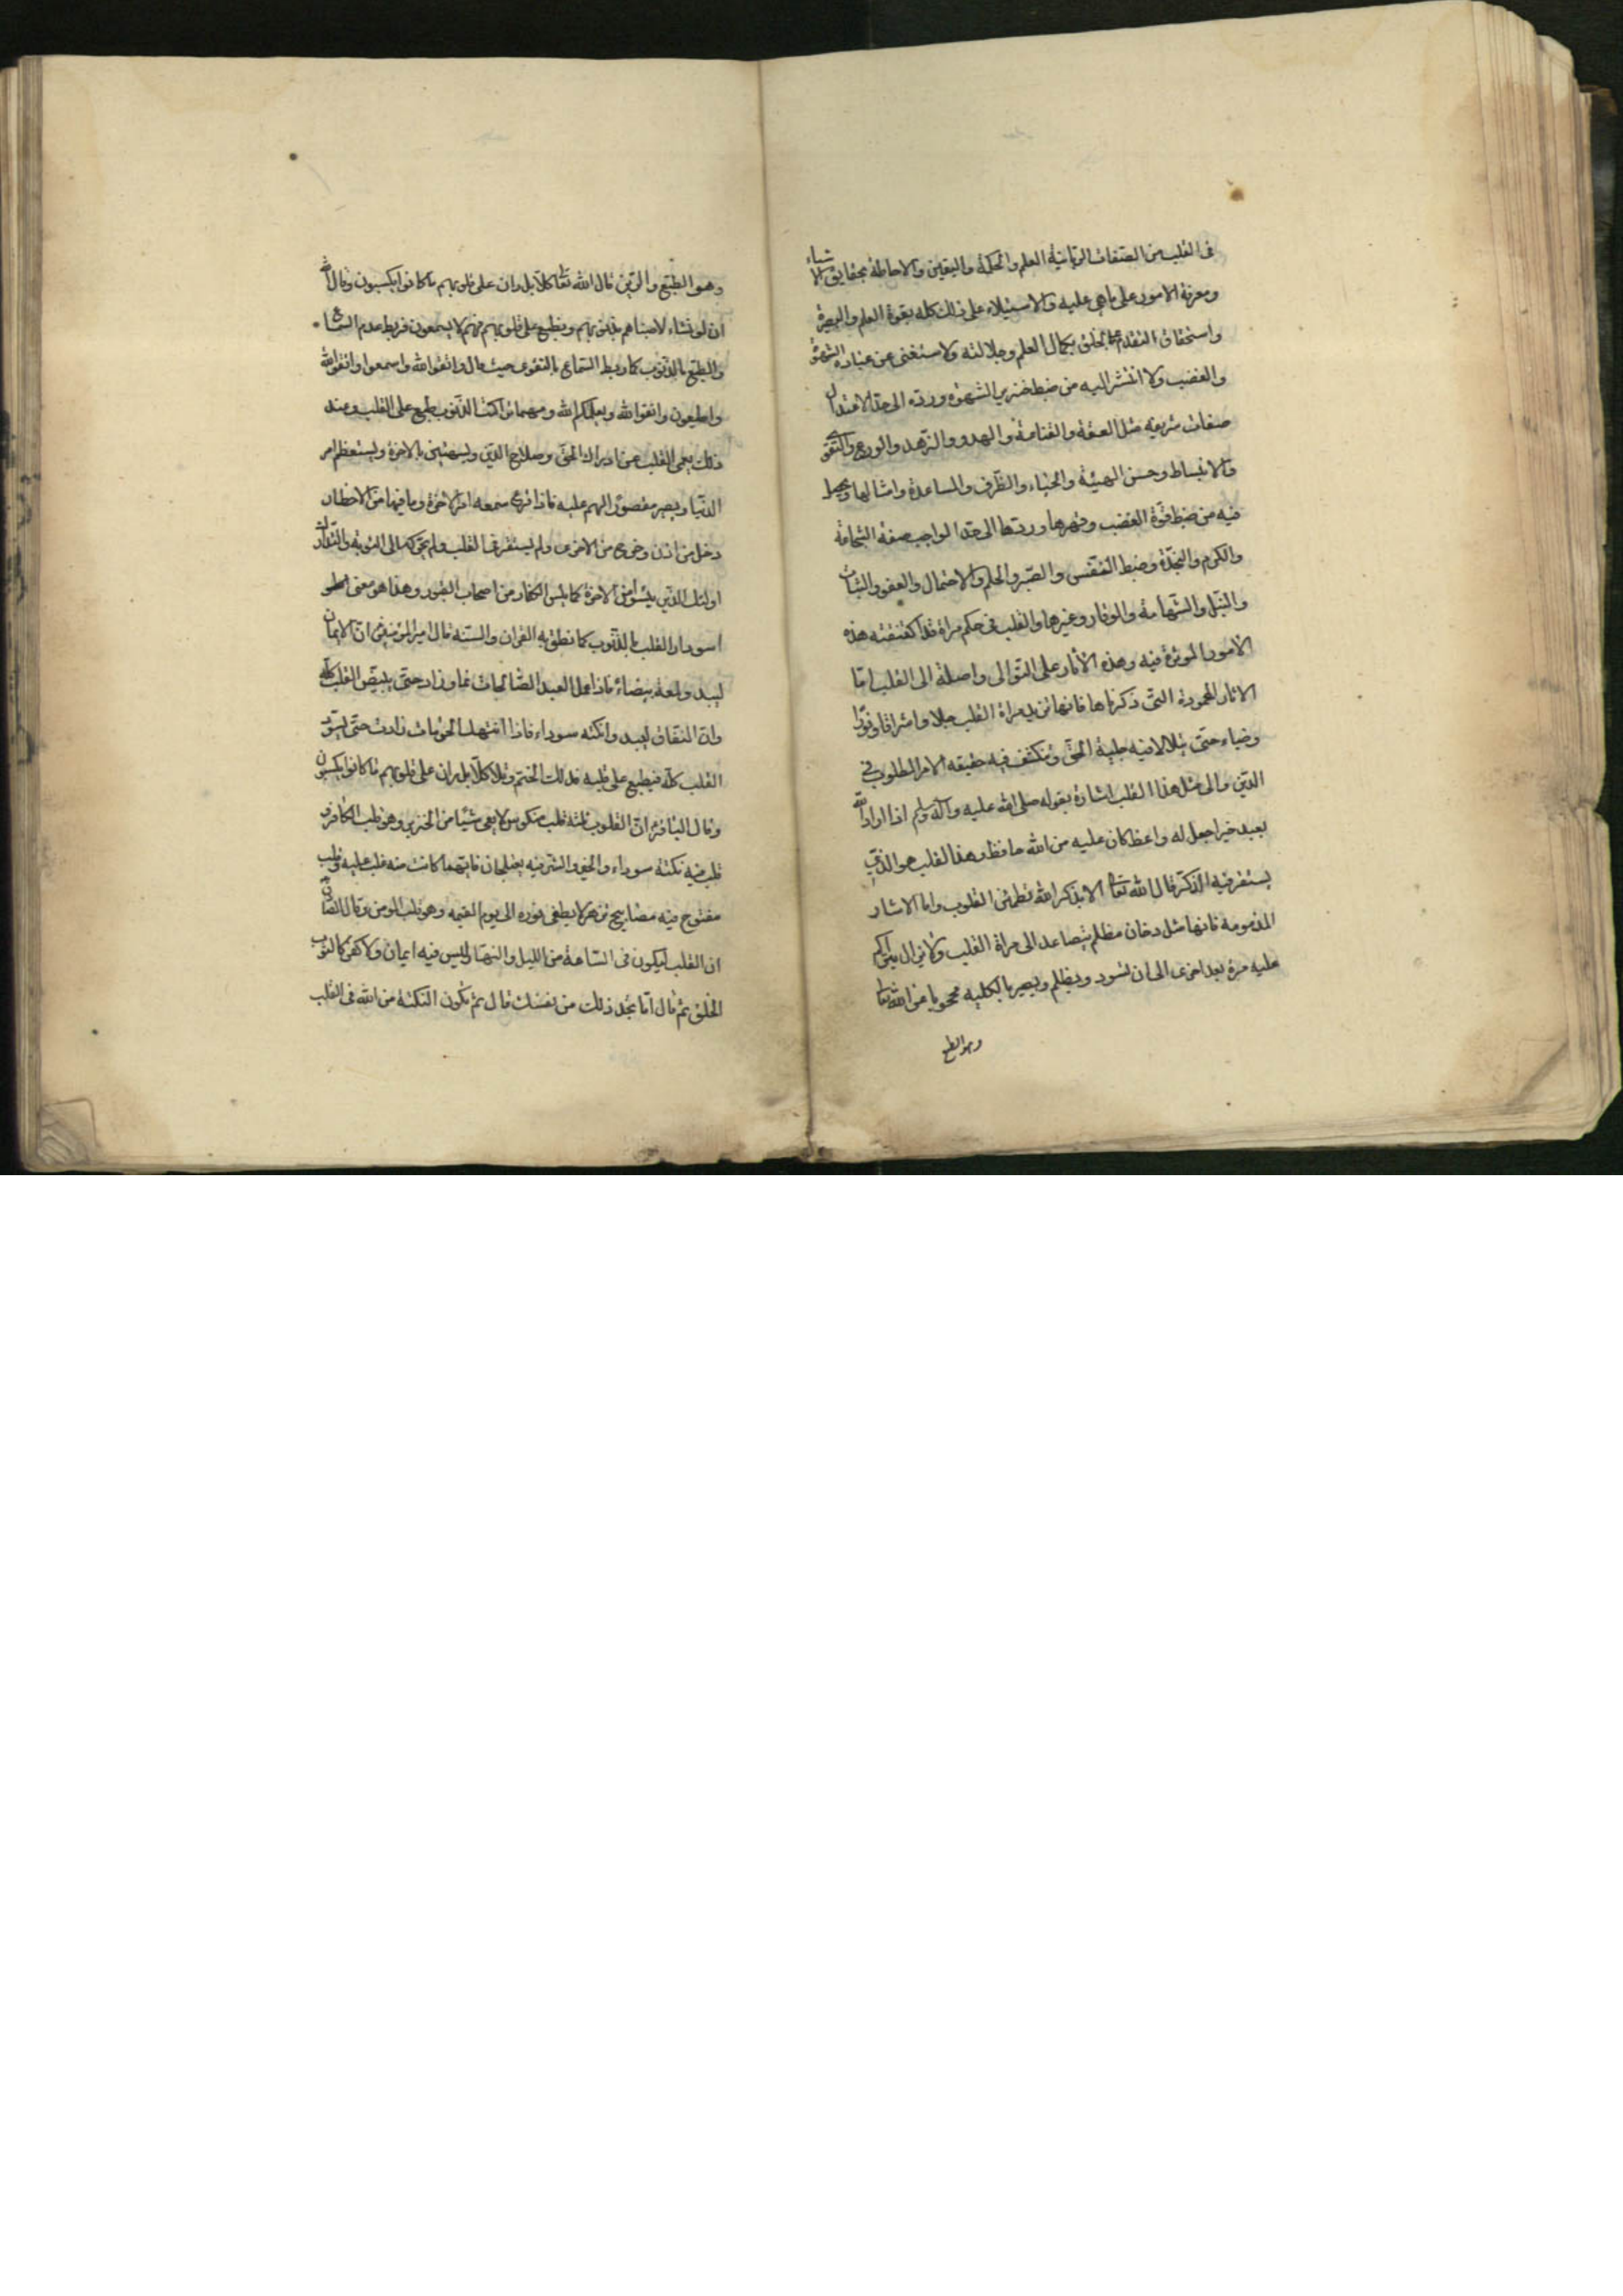 فى القلب من الصفات الربانية العلم والحكمة واليقين والاحاطة بحقايق الاشياء
ومعرفة الامور على ما هى عليه والاستيلاء على ذلك كله بقوة العلم والبصيرة
واستحقاق التقدم على الخلق بكمال العلم وجلالته ولاستغنى عن عبادة الشهوة
والغضب ولا انتشر اليه من ضبط خنزير الشهوة ورده الى حد الاعتدال
صفات شريفه مثل العفة والقناعة والهدو والزهد والورع والتقوى
والانبساط وحسن الهيئة والحياء والظرف والمساعدة وامثالها ويحصل
فيه من ضبط قوة الغضب وقهرها وردها الى حد الواجب صفة الشجاعة
والكرم والنجدة وضبط النفس والصبر والحلم والاحتمال والعفو والثبات
والنبل والشهامة والوقار وغيرها والقلب فى حكم مراة قد اكتنفته هذه
الامور الموثرة فيه وهذه الاثار على التوالى واصلة الى القلب اما
الاثار المحمودة التى ذكرناها فانها تزيد مراة القلب جلا واشراقا ونورا
وضياء حتى يتلالا فيه جلية الحق وينكشف فيه حقيقه الامر المطلوب فى
الدين والى مثل هذا القلب اشارة بقوله صلى الله عليه وآله وسلم اذا اراد الله
بعبد خيرا جعل له واعظا كان عليه من الله حافظ وهذا القلب هو الذى
يستقر فيه الذكر قال الله تعا الا بذكر الله تطمئن القلوب واما الاثار
المذمومه فانها مثل دخان مظلم يتصاعد الى مراة القلب ولا يزال يتراكم
عليه مرة بعد اخرى الى ان تسود ويظلم ويصير بالكليه محجوبا عن الله تعا
وهو الطبع
وهو الطبع والرين قال الله تعا كلا بل ران على قلوبهم ما كانوا يكسبون وقال الله
ان لو نشاء لاصبناهم بذنوبهم ونطبع على قلوبهم فهم لا يسمعون فربط عدم السماع
والطبع بالذنوب كما ربط السماع بالتقوى حيث قال واتقوا الله واسمعوا واتقوا الله
واطيعون واتقوا الله ويعلمكم الله ومهما تراكمت الذنوب طبع على القلب وعند
ذلك يعمى القلب عن ادراك الحق وصلاح الدين ويستهين بالاخرة ويستعظم امر
الدنيا ويصير مقصور الهم عليه فاذا قرع سمعه امر الاخرة وما فيها من الاخطار
دخل من اذن وخرج من الاخرى ولم يستقر فى القلب ولم يحركه الى التوبة والتدارك
اولئك الذين يئسوا من الاخرة كما يئس الكفار من اصحاب القبور وهذا هو معنى
اسوداد القلب بالذنوب كما نطق به القران والسنة قال امير المؤمنين ان الايمان
ليبدو لمعة بيضاء فاذا عمل العبد الصالحات نما وزاد حتى يبيض القلب كله
وان النفاق ليبدو نكته سوداء فاذا انتهك الحرمات زادت حتى يسود
القلب كله فيطبع على قلبه فذلك الختم وتلا كلا بل ران على قلوبهم ما كانوا يكسبون
وقال الباقر ان القلوب ثلثة قلب منكوس لا يعى شيئا من الخير وهو قلب الكافر و
قلب فيه نكتة سوداء والخير والشر فيه يعتلجان فايهما كانت منه غلب عليه وقلب
مفتوح فيه مصابيح تزهر لا يطفى نوره الى يوم القيمه وهو قلب المومن وقال الصادق
ان القلب ليكون فى الساعة من الليل والنهار ليس فيه ايمان ولا كفر كالثوب
الخلق ثم قال اما تجد ذلك من نفسك قال ثم تكون النكتة من الله فى القلب